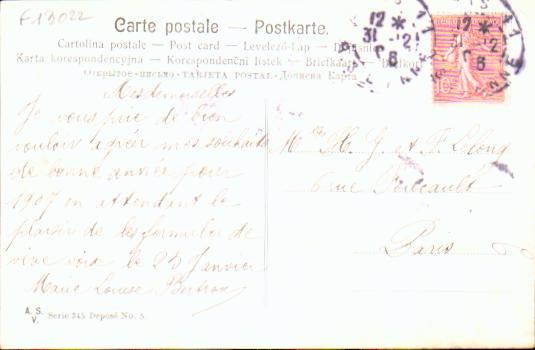 F-13022
Carte postale — Postkarte.
Cartolina postale — Post card — Levelező-Lap —
Karta korespondencyjna — Korespondenční listek — Briefkaart —
Открытое-письмо — TARJETA POSTAL — Дописна Карта
Mesdemoiselles
Je vous prie de bien
vouloir agréer mes souhaits
de bonne année pour
1907 en attendant le
plaisir de les formuler de
vive voix le 25 Janvier
Marie Louise Bertron
A. S. V. Serie 345 Deposé No. 5.
12 *
31 -12
06
Mlles H. G. et F. Lelong
6 rue
Paris
10